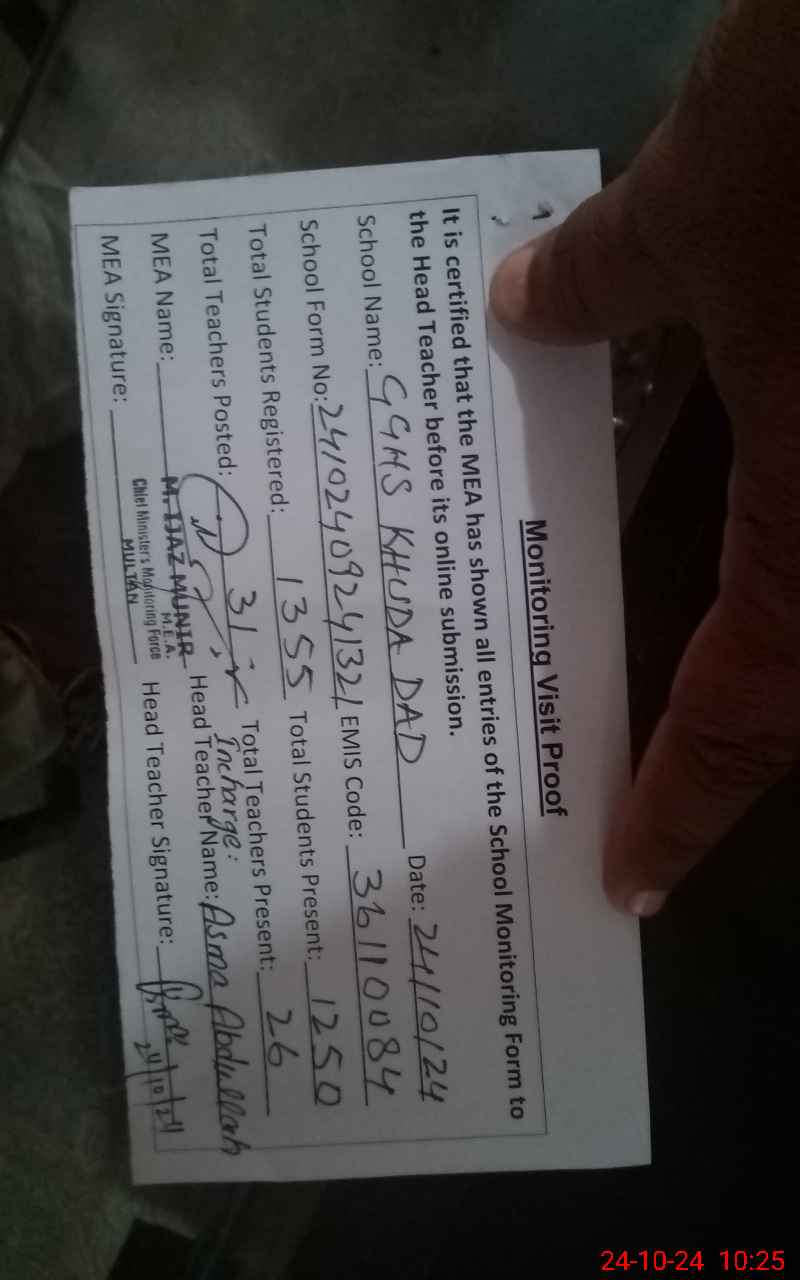 Monitoring Visit Proof
It is certified that the MEA has shown all entries of the School Monitoring Form to
the Head Teacher before its online submission.
School Name: GGHS KHUDA DAD Date: 24/10/24
School Form No: 2410240924132/ EMIS Code: 36110084
Total Students Registered: 1355 Total Students Present: 1250
Total Teachers Posted: 31 Total Teachers Present: 26
Incharge:
MEA Name: M. IJAZ MUNIR Head Teacher Name: Asma Abdullah
M.E.A.
Chief Minister's Monitoring Force
MULTAN
MEA Signature: Head Teacher Signature:
24/10/24
24-10-24 10:25